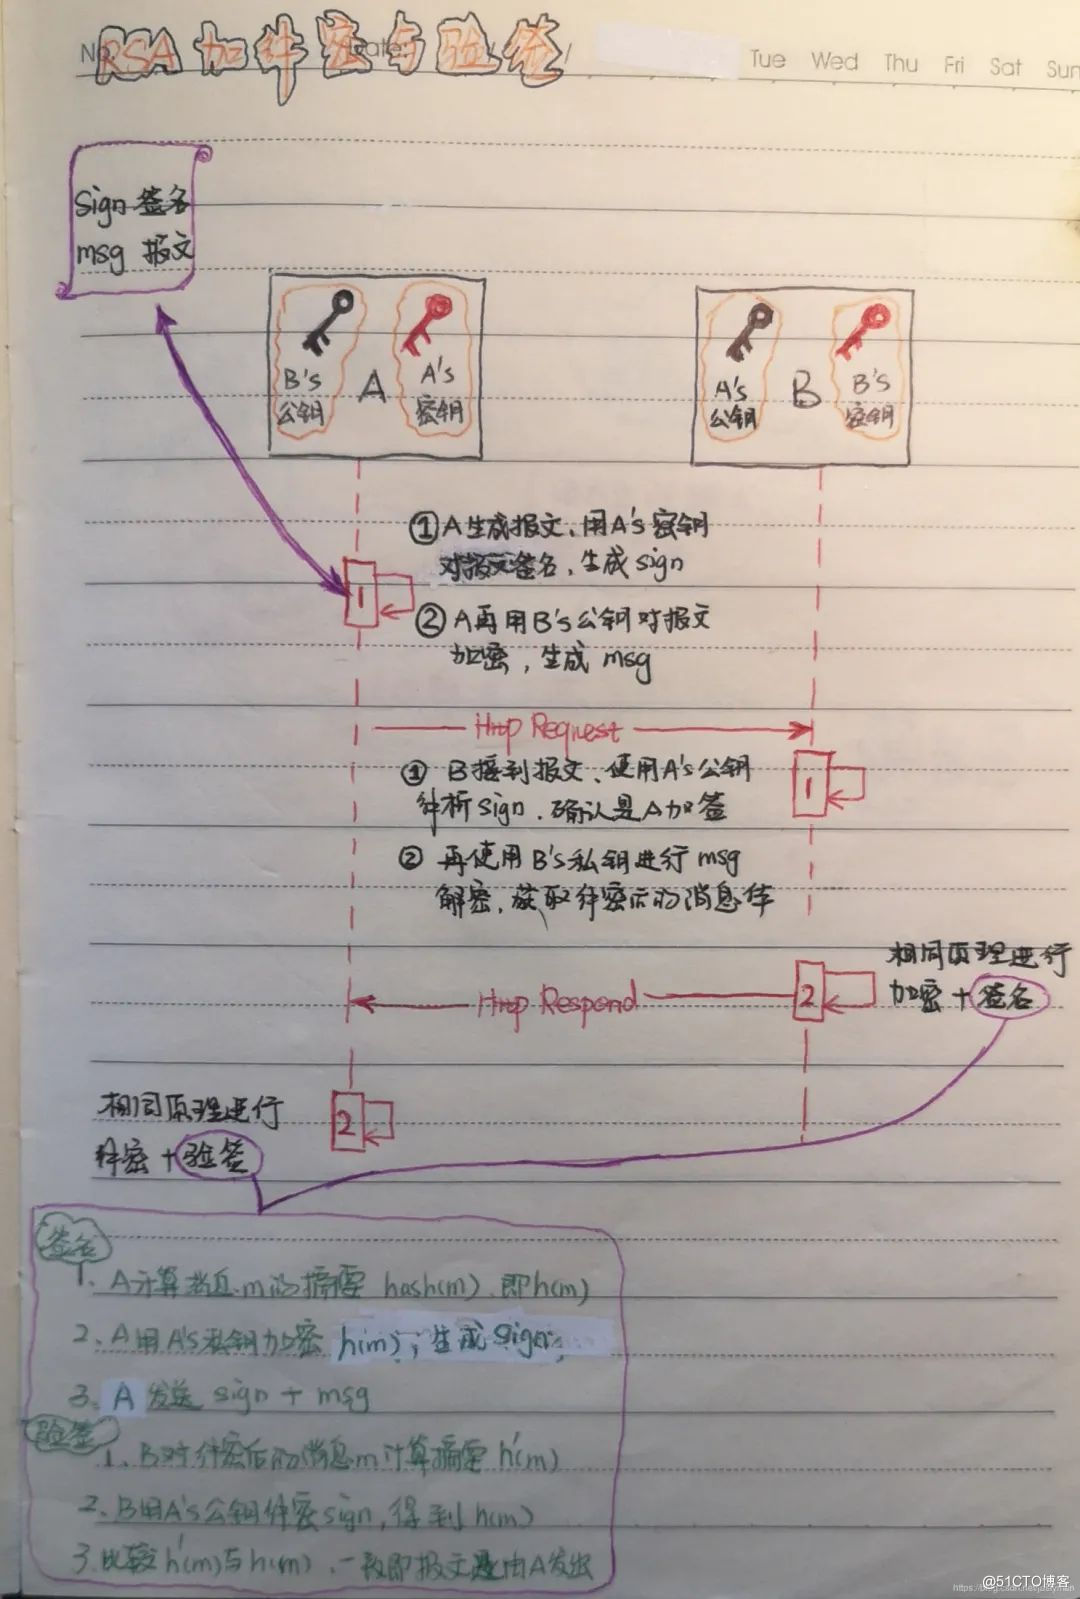 No.
Date:
Tue Wed Thu Fri Sat Sun
RSA 加件密与验签
Sign 签名
msg 报文
B's
公钥
A
A's
密钥
A's
公钥
B
B's
密钥
①A生成报文、用A's密钥
对报文签名、生成sign
1
②A再用B's公钥对报文
加密,生成 msg
Http Request
① B接到报文、使用A's公钥
件析sign、确认是A加签
1
② 再使用B's私钥进行 msg
解密,获取件密后的消息体
相同原理进行
加密+签名
2
Http Respond
相同原理进行
件密+验签
2
签名
1、A计算消息m的摘要 hash(m)、即h(m)
2、A用A's私钥加密 h(m);生成sign;
3、A 发送 sign + msg
验签
1、B对件密后的消息m计算摘要 h'(m)
2、B用A's公钥件密sign,得到h(m)
3、比较h'(m)与h(m)、一致即报文是由A发出
@51CTO博客